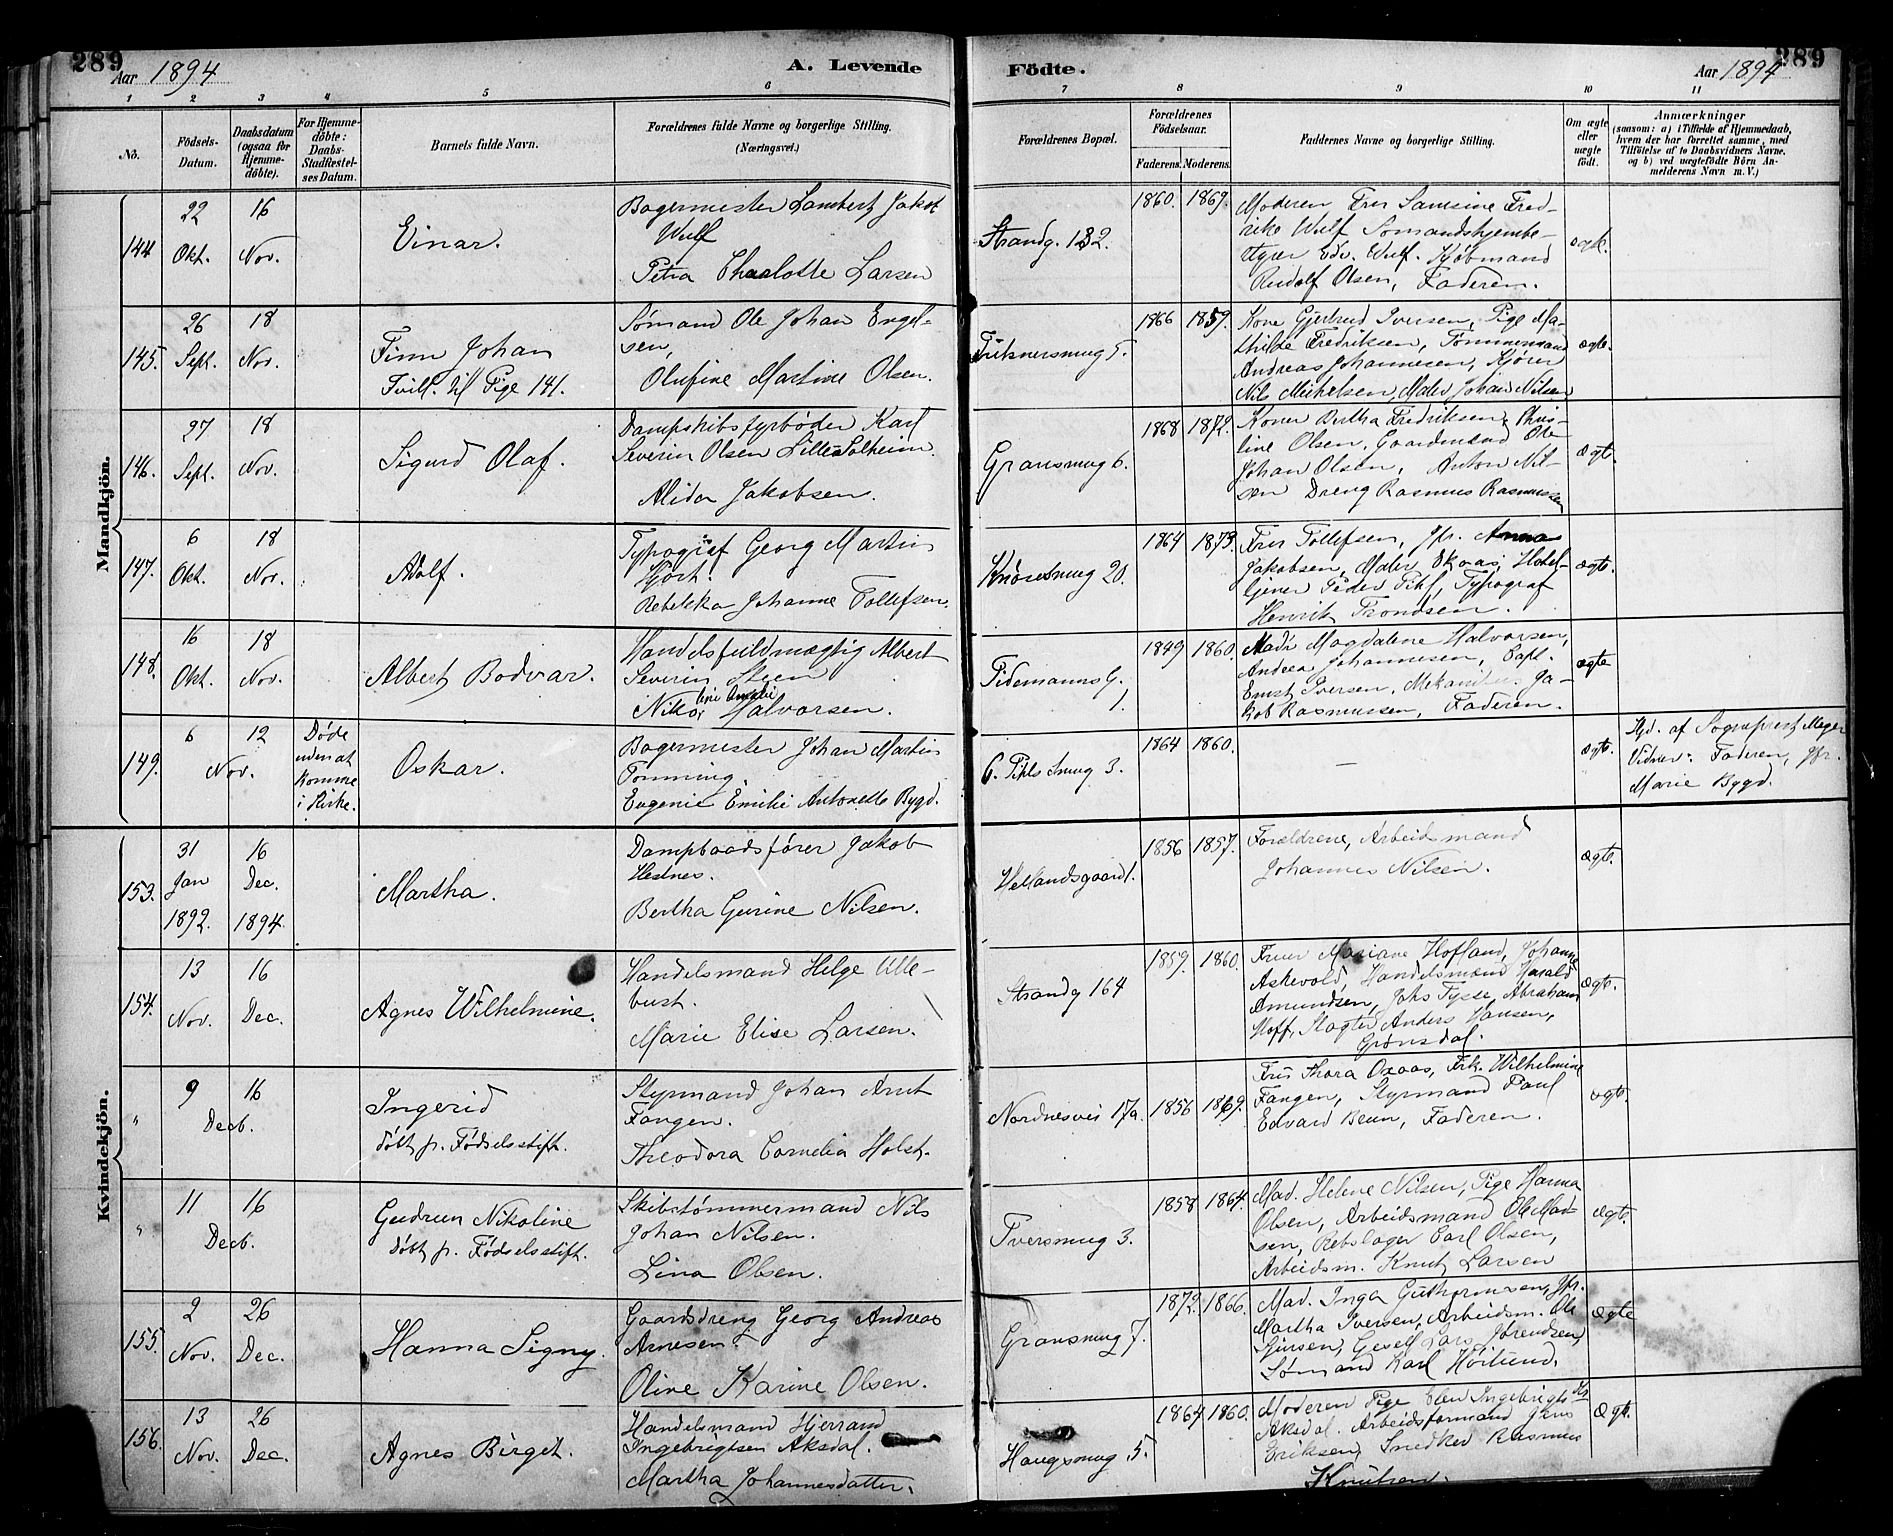 289
Aar 1894
A. Levende
Födte.
Aar 1894
289
1 2 3 4 5 6 7 8 9 10 11
No.
Födsels-
Datum.
Daabsdatum
(ogsaa for
Hjemme-
döbte).
For Hjemme-
döbte:
Daabs-
Stadfæstel-
ses Datum.
Barnets fulde Navn.
Forældrenes fulde Navne og borgerlige Stilling.
(Næringsvei.)
Forældrenes Bopæl.
Forældrenes
Födselsaar.
Faderens. Moderens.
Faddernes Navne og borgerlige Stilling.
Om ægte
eller
uægte
født.
Anmærkninger
(saasom: a) i Tilfælde af Hjemmedaab,
hvem der har forrettet samme, med
Tilföielse af to Daabsvidners Navne,
og b) ved uægtefödte Börn An-
melderens Navn m. V.)
Mandkjön.
144
22
Okt.
16
Nov.
Einar.
Bagermester Lambert Jakob
Wulf
Petra Charlotte Larsen
Strandg. 132.
1860. 1869.
Moderen Fru Samsine Fred-
rike Wulf Sömandshjembe-
styrer Edv. Wulf. Kjøbmand
Rudolf Olsen, Faderen.
ægte.
145.
26
Sept.
18
Nov.
Finn Johan
Tvill. til Pige 141.
Sømand Ole Johan Engel-
sen,
Olufine Martine Olsen.
1866 1859.
Kone Gjertrud Iversen, Pige Ma-
thilde Fredriksen, Tømmermand
Andreas Johannesen, Kjører
Nils Michelsen, Maler Johan Nilsen
ægte.
146.
27
Sept.
18
Nov.
Sigurd Olaf.
Dampskibsfyrbøder Karl
Severin Olsen Lille Solheim.
Alida Jakobsen.
Gransmug 6.
1868 1872.
Koner Bertha Fredriksen, Chris-
tine Olsen, Gaardmand Ole
Johan Olsen, Anton Nil-
sen Dreng Rasmus Rasmussen
ægte.
147.
6
Okt.
18
Nov.
Adolf.
Typograf Georg Martin
Hjort.
Rebekka Johanne Tollefsen.
Knøsesmug 20.
1864 1873.
Fru Tollefsen, Jfr. Anna
Jakobsen, Maler Skaas, Hotel-
tjener Peder Pihl, Typograf
Henrik Trondsen.
ægte.
148.
16
Okt.
18
Nov.
Albert Bodvar.
Handelsfuldmægtig Albert
Severin Steen
Nikoline Amalie Halvorsen.
Tidemanns G.
1.
1849 1860.
Mad. Magdalene Halvorsen,
Andrea Johannesen, Capt.
Ernst Iversen, Mekaniker Ja-
kob Rasmussen, Faderen.
ægte
149.
6
12
Nov.
Døde
uden at
komme
i Kirke.
Oskar.
Bagermester Johan Martin
Tonning.
Eugenie Emilie Antonette Bygd.
C. Pihls Smug 3.
1864 1860.
—
ægte.
Hjd. af Sogneprest Meyer
Vidner: Faderen, Jfr.
Marie Bygd.
Kvindekjön.
153.
31
Jan
1892.
16
Dec.
1894.
Martha.
Dampbaadsfører Jakob
Hesnes.
Bertha Gurine Nilsen.
Hellandsgaard 1.
1856 1857.
Forældrene, Arbeidsmand
Johannes Nilsen.
ægte.
154.
13
Nov.
16
Dec.
Agnes Wilhelmine.
Handelsmand Helge Ulle-
bust.
Marie Elise Larsen.
Strandg 164
1859. 1860.
Fruer Mariane Hofland, Johanne
Askevold, Handelsmænd Harald
Amundsen, Johs Tysse, Abraham
Hoff, Slagter Anders Hansen,
Grønsdal.
ægte.
"
9
16
Decb.
Ingerid
døbt p. Fødselsstift.
Styrmand Johan Arnt
Fangen.
Theodora Cornelia Holst.
Nordnesvei 17a.
1856 1869.
Fru Thora Oxaas, Frk. Wilhelmine
Fangen, Styrmand Paul
Edvard Beun, Faderen.
ægte.
"
11
16
Decb.
Gudrun Nikoline
døbt p. Fødselsstift.
Skibstømmermand Nils
Johan Nilsen.
Lina Olsen.
Tversmug 3.
1858 1864.
Mad. Helene Nilsen, Pige Hanna
Olsen, Arbeidsmand Ole Mad-
sen, Rebslager Carl Olsen,
Arbeidsm. Knut Larsen
ægte.
155.
2
Nov.
26
Dec.
Hanna Signy.
Gaardsdreng Georg Andreas
Arnesen.
Oline Karine Olsen.
Gransmug 7.
1872. 1866.
Mad. Inga Guthormsen, Jfr.
Martha Iversen, Arbeidsm. Ole
Sjursen, Gesell Lars Jørendsen,
Sømand Karl Høilund.
ægte
156.
13
Nov.
26
Dec.
Agnes Birgit.
Handelsmand Hjerrand
Ingebrigtsen Aksdal.
Martha Johannesdatter.
Haugsmug 5.
1864 1860.
Moderen Pige Elen Ingebrigtsdtr
Aksdal. Arbeidsformand Jens
Eriksen, Snedker Rasmus
Knutsen.
ægte.